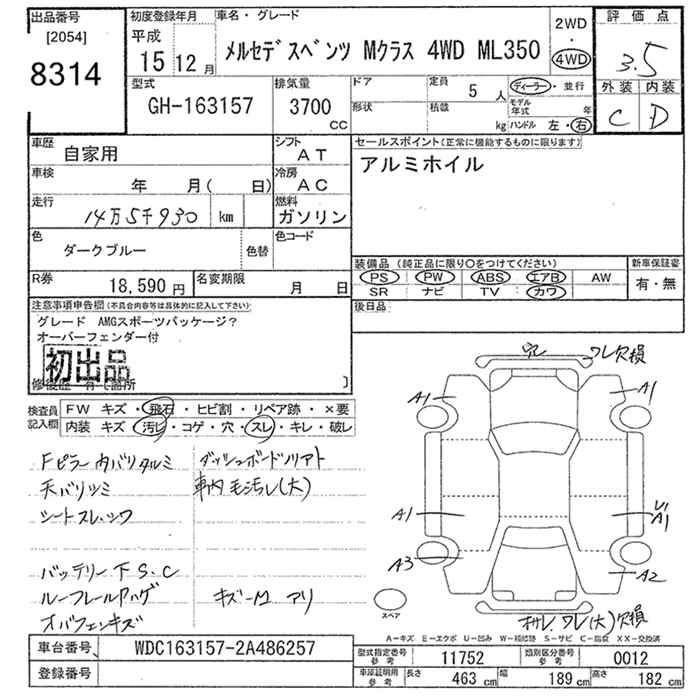 出品番号
[2054]
8314
初度登録年月
平成
15年12月
車名・グレード
メルセデスベンツ Mクラス 4WD ML350
2WD
・
4WD
評価点
3.5
外装 内装
C D
型式
GH-163157
排気量
3700
CC
ドア
形状
定員
5人
積載
kg
ディーラー・並行
モデル年式 年
ハンドル 左・右
車歴
自家用
シフト
AT
車検
年 月( 日)
冷房
AC
走行
14万5千930 km
燃料
ガソリン
色
ダークブルー
色替
色コード
R券
18,590円
名変期限
月 日
セールスポイント(正常に機能するものに限ります)
アルミホイル
装備品(純正品に限り○をつけてください)
PS PW ABS エアB AW
SR ナビ TV : カワ
新車保証書
有・無
後日品
注意事項申告欄(不具合内容等は具体的に記入して下さい)
グレード AMGスポーツパッケージ?
オーバーフェンダー付
初出品
検査員記入欄
FW キズ・飛石・ヒビ割・リペア跡・×要
内装 キズ・汚レ・コゲ・穴・スレ・キレ・破レ
Fピラー内バリタルミ
ダッシュボードソリアト
天バリシミ
車内毛汚レ(大)
シートスレ、シワ
バッテリー下S、C
ルーフレールハゲ
キズーM アリ
オバフェンキズ
穴
ワレ欠損
A1
A1
A1
A1
A3
A2
スペア
ワレ(大)欠損
A-キズ E-エクボ U-凹み W-補修跡 S-サビ C-腐食 XX-交換済
車台番号
WDC163157-2A486257
登録番号
型式指定番号
参考
11752
類別区分番号
参考
0012
車体証明用
参考
長さ 463cm
幅 189cm
高さ 182cm